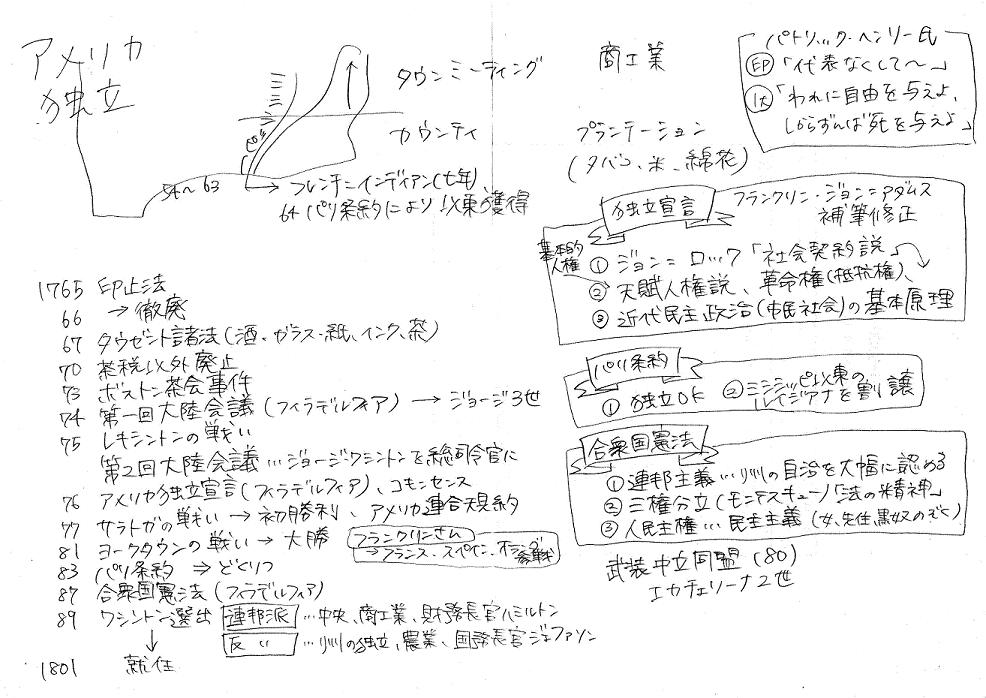 アメリカ
独立
タウンミーティング
カウンティ
商工業
プランテーション
(タバコ、米、綿花)
パトリック・ヘンリー氏
印「代表なくして〜」
「われに自由を与えよ、
しからずんば死を与えよ」
54〜63
フレンチ=インディアン(七年)
64 パリ条約により以東獲得
独立宣言
フランクリン・ジョン=アダムス
補筆修正
基本的
人権
① ジョン=ロック「社会契約説」
② 天賦人権説、革命権(抵抗権)、
③ 近代民主政治(市民社会)の基本原理
パリ条約
① 独立OK ② ミシシッピ以東の
ルイジアナを割譲
合衆国憲法
① 連邦主義…州の自治を大幅に認める
② 三権分立(モンテスキュー)「法の精神」
③ 人民主権…民主主義(女、先住、黒奴のぞく)
武装中立同盟(80)
エカチェリーナ2世
1765 印止法
66 →徹廃
67 タウゼント諸法(酒、ガラス・紙、インク、茶)
70 茶税以外廃止
73 ボストン茶会事件
74 第一回大陸会議(フィラデルフィア)→ジョージ3世
75 レキシントンの戦い
第2回大陸会議…ジョージ・ワシントンを総司令官に
76 アメリカ独立宣言(フィラデルフィア)、コモンセンス
77 サラトガの戦い→初勝利、アメリカ連合規約
81 ヨークタウンの戦い→大勝
フランクリンさん
→フランス・スペイン・オランダ参戦
83 パリ条約 ⇒ どくりつ
87 合衆国憲法(フィラデルフィア)
89 ワシントン選出 連邦派…中央、商工業、財務長官ハミルトン
反〃…州の独立、農業、国務長官ジェファソン
1801 就任